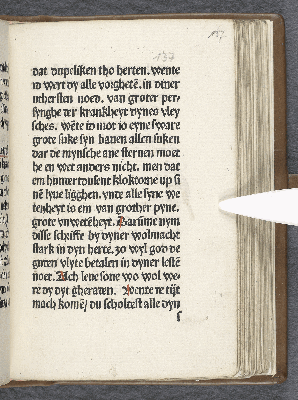 137
137
dat dupeliken tho herten. wente
id wert dy alle vorghetē. in diner
uthersten noed. van groter per-
synghe der krankheyt dynes vley
sches. wēte id mot io eyne sware
grote suke syn bauen allen suken
dar de mynsche ane steruen moet
he en wet anders nicht. men dat
em hunnertdusent klokkome up si
nē lyue ligghen. vnde alle syne we
tenheyt is em van grother pyne.
grote vnwetēheyt. Darūme nym
disse schriffte by dyner wolmacht
stark in dyn herte. zo wyl god de
guden vlyte betalen in dyner lestē
noet. Ach leue sone wo wol we-
re dy dyt gheraten. Wente te tijt
mach komē/ du scholtest alle dyn
s